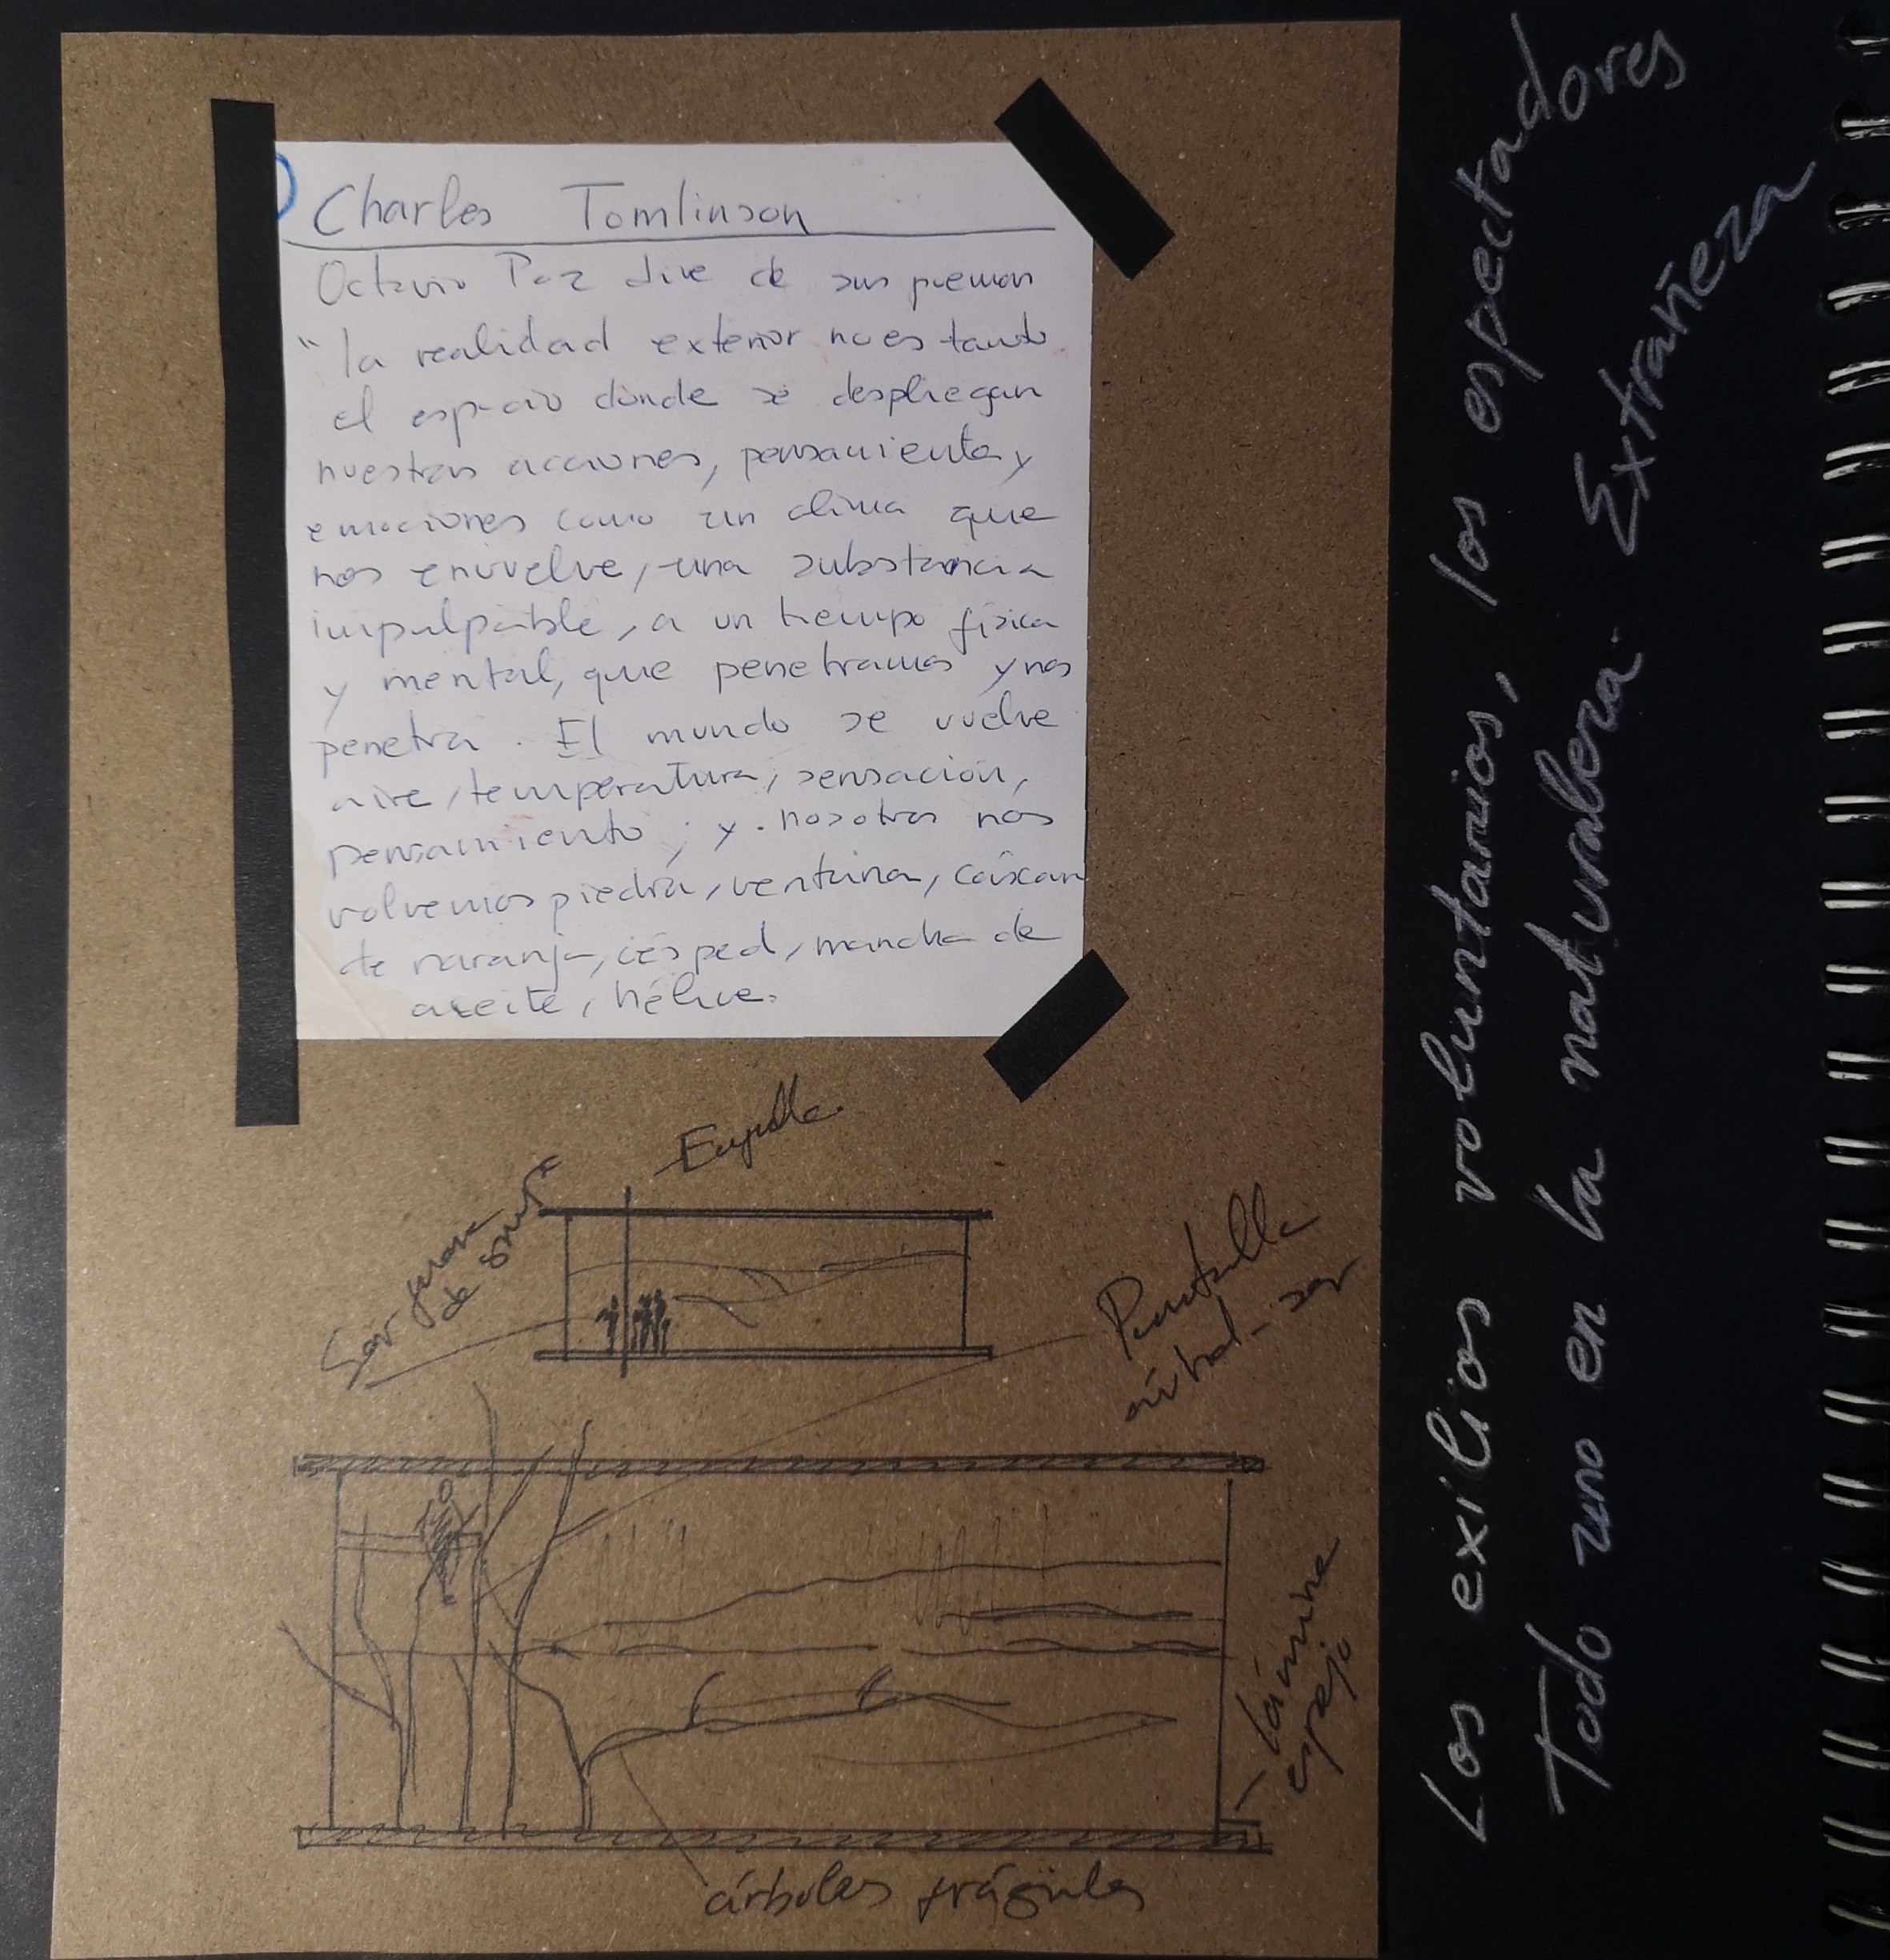 Charles Tomlinson
Octavio Paz dice de sus poemas
"la realidad exterior no es tanto
el espacio donde se despliegan
nuestras acciones, pensamientos y
emociones como un clima que
nos envuelve, una substancia
impalpable, a un tiempo física
y mental, que penetramos y nos
penetra. El mundo se vuelve
aire, temperatura, sensación,
pensamiento; y nosotros nos
volvemos piedra, ventana, cáscara
de naranja, césped, mancha de
aceite, hélice.
Sor Juana
de
Pantalla
árbol-
lámina
espejo
árboles frágiles
Los exilios voluntarios, los espectadores
Todo uno en la naturaleza. Extrañeza